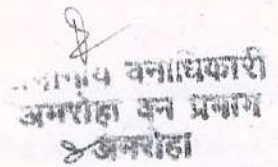 वनाधिकारी
अमरोहा वन प्रभाग
अमरोहा